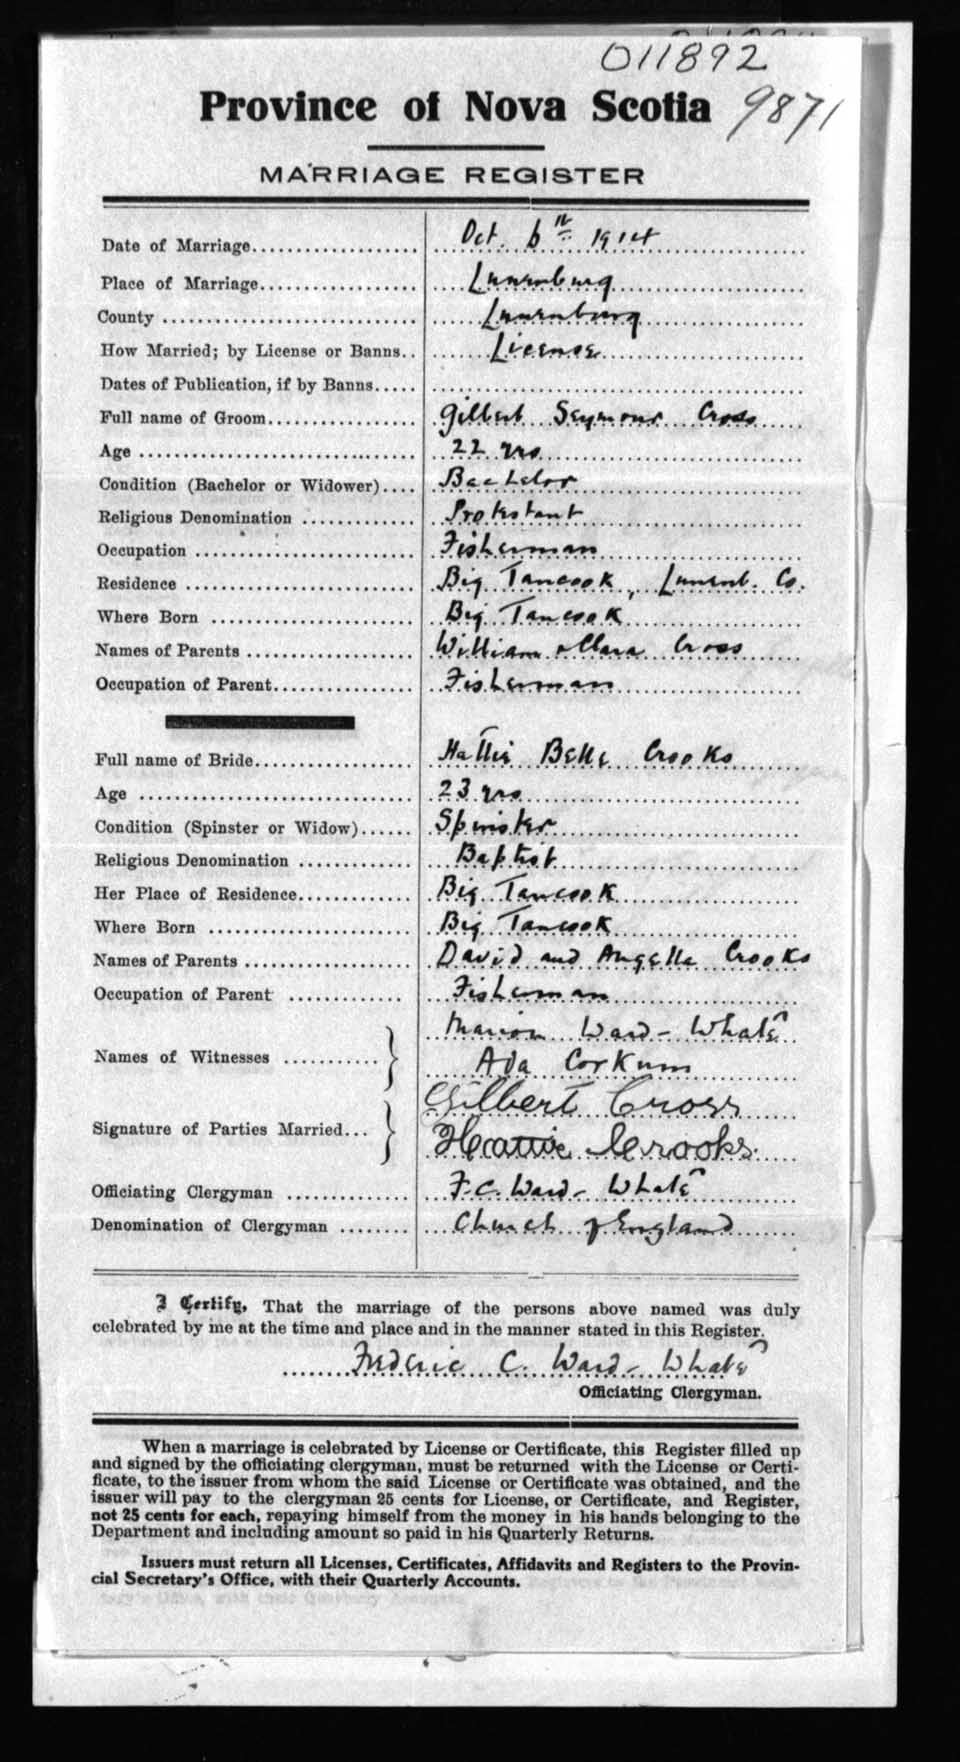 011892
Province of Nova Scotia 9871
MARRIAGE REGISTER
Date of Marriage.................. Oct. 6th 1914
Place of Marriage.................. Lunenburg
County .................. Lunenburg
How Married; by License or Banns.. License
Dates of Publication, if by Banns.....
Full name of Groom.................. Gilbert Seymour Cross
Age .................. 22 yrs
Condition (Bachelor or Widower).... Bachelor
Religious Denomination ............. Protestant
Occupation .................. Fisherman
Residence .................. Big Tancook, Lunenb. Co.
Where Born .................. Big Tancook
Names of Parents .................. William & Clara Cross
Occupation of Parent................ Fisherman
Full name of Bride.................. Hattie Belle Crooks
Age .................. 23 yrs
Condition (Spinster or Widow)...... Spinster
Religious Denomination ............. Baptist
Her Place of Residence............. Big Tancook
Where Born .................. Big Tancook
Names of Parents .................. David and Angella Crooks
Occupation of Parent ............. Fisherman
Names of Witnesses ........... Marion Ward-Whatê
Ada Corkum
Signature of Parties Married... Gilbert Cross
Hattie Crooks
Officiating Clergyman ............. F.C. Ward-Whatê
Denomination of Clergyman ........ Church of England
I Certify, That the marriage of the persons above named was duly
celebrated by me at the time and place and in the manner stated in this Register.
Frederic C. Ward-Whatê
Officiating Clergyman.
When a marriage is celebrated by License or Certificate, this Register filled up
and signed by the officiating clergyman, must be returned with the License or Certi-
ficate, to the issuer from whom the said License or Certificate was obtained, and the
issuer will pay to the clergyman 25 cents for License, or Certificate, and Register,
not 25 cents for each, repaying himself from the money in his hands belonging to the
Department and including amount so paid in his Quarterly Returns.
Issuers must return all Licenses, Certificates, Affidavits and Registers to the Provin-
cial Secretary's Office, with their Quarterly Accounts.